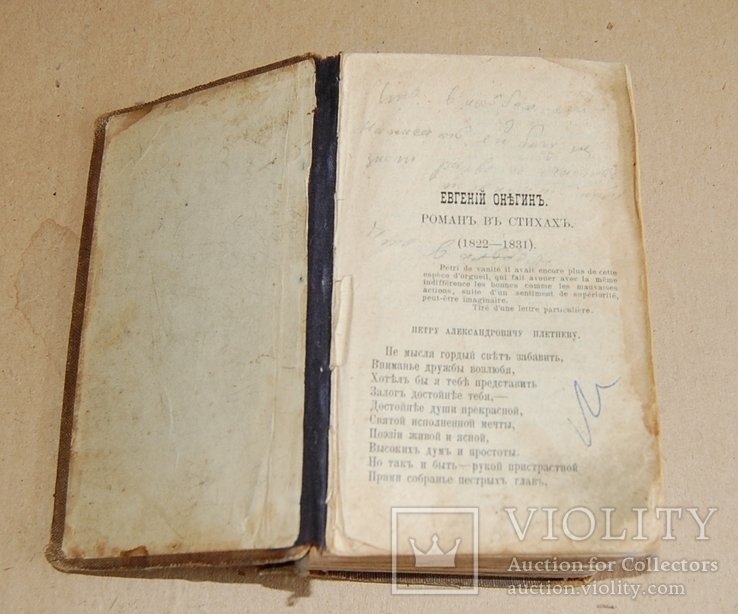 ЕВГЕНІЙ ОНѢГИНЪ.
РОМАНЪ ВЪ СТИХАХЪ.
(1822—1831).
Petri de vanité il avait encore plus de cette
espèce d'orgueil, qui fait avouer avec la même
indifférence les bonnes comme les mauvaises
actions, suite d'un sentiment de supériorité,
peut-être imaginaire.
Tiré d'une lettre particulière.
ПЕТРУ АЛЕКСАНДРОВИЧУ ПЛЕТНЕВУ.
Не мысля гордый свѣтъ забавить,
Вниманье дружбы возлюбя,
Хотѣлъ бы я тебѣ представить
Залогъ достойнѣе тебя,—
Достойнѣе души прекрасной,
Святой исполненной мечты,
Поэзіи живой и ясной,
Высокихъ думъ и простоты.
Но такъ и быть—рукой пристрастной
Прими собранье пестрыхъ главъ,
VIOLITY
Auction for Collectors
auction.violity.com